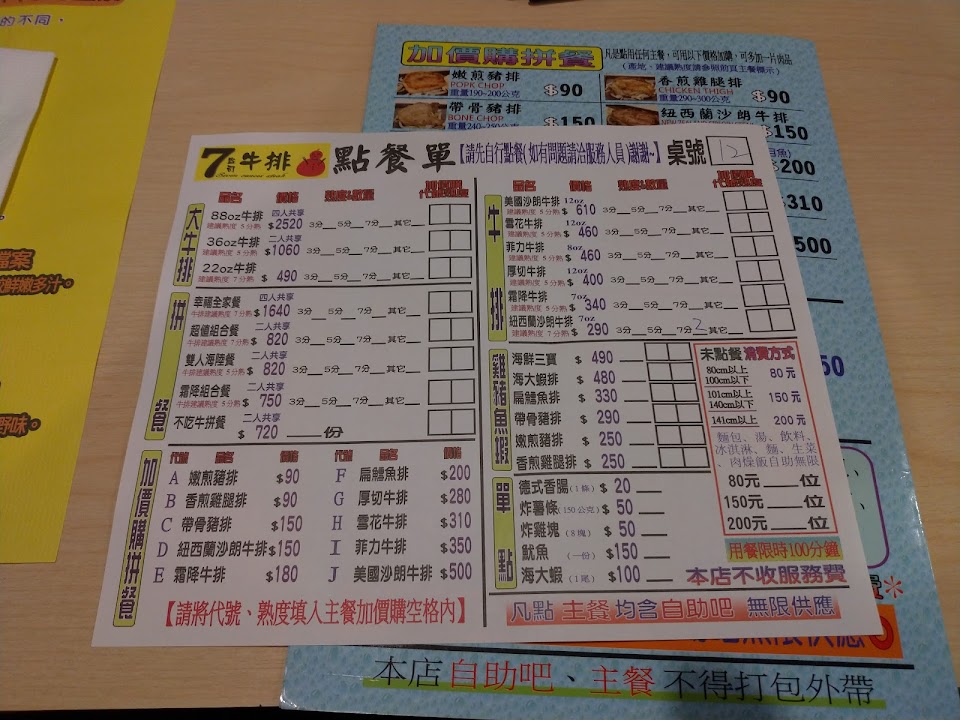 的不同,
檔案
鮮嫩多汁。
野味。
加價購拼餐 凡是點用任何主餐,可用以下價格加購,可多加一片肉品
(產地、建議熟度請參照前頁主餐標示)
嫩煎豬排
PORK CHOP
重量190~200公克 $90
香煎雞腿排
CHICKEN THIGH
重量290~300公克 $90
帶骨豬排
BONE CHOP
重量240~250公克 $150
紐西蘭沙朗牛排
$150
$310
500
50
7 牛排 點餐單【請先自行點餐(如有問題請洽服務人員)謝謝~】桌號 12
品名 價格 熟度&數量
大牛排
88oz牛排 四人共享
建議熟度 5分熟 $2520 3分__5分__7分__其它__
36oz牛排 二人共享
建議熟度 5分熟 $1060 3分__5分__7分__其它__
22oz牛排
建議熟度 7分熟 $ 490 3分__5分__7分__其它__
拼餐
幸福全家餐 四人共享
牛排建議熟度 7分熟 $1640 3分__5分__7分__其它__
超值組合餐 二人共享
牛排建議熟度 5分熟 $ 820 3分__5分__7分__其它__
雙人海陸餐 二人共享
牛排建議熟度 5分熟 $ 820 3分__5分__7分__其它__
霜降組合餐 二人共享
牛排建議熟度 5分熟 $ 750 3分__5分__7分__其它__
不吃牛拼餐 二人共享
$ 720 ____份
加價購拼餐
代號 品名 價格 代號 品名 價格
A 嫩煎豬排 $90 F 扁鱈魚排 $200
B 香煎雞腿排 $90 G 厚切牛排 $280
C 帶骨豬排 $150 H 雪花牛排 $310
D 紐西蘭沙朗牛排$150 I 菲力牛排 $350
E 霜降牛排 $180 J 美國沙朗牛排$500
【請將代號、熟度填入主餐加價購空格內】
品名 價格 熟度&數量
牛排
美國沙朗牛排 12oz
建議熟度 5分熟 $ 610 3分__5分__7分__其它__
雪花牛排 12oz
建議熟度 5分熟 $ 460 3分__5分__7分__其它__
菲力牛排 8oz
建議熟度 5分熟 $ 460 3分__5分__7分__其它__
厚切牛排 12oz
建議熟度 5分熟 $ 400 3分__5分__7分__其它__
霜降牛排 7oz
建議熟度 5分熟 $ 340 3分__5分__7分__其它__
紐西蘭沙朗牛排 7oz
建議熟度 7分熟 $ 290 3分__5分__7分 2 其它__
雞豬魚蝦
海鮮三寶 $ 490
海大蝦排 $ 480
扁鱈魚排 $ 330
帶骨豬排 $ 290
嫩煎豬排 $ 250
香煎雞腿排 $ 250
單點
德式香腸(1條) $ 20 ___
炸薯條(150公克) $ 50 ___
炸雞塊(8塊) $ 50 ___
魷魚 (一份) $150 ___
海大蝦(1尾) $100 ___
未點餐 消費方式
80cm以上
100cm以下 80 元
101cm以上
140cm以下 150 元
141cm以上 200 元
麵包、湯、飲料、
冰淇淋、麵、生菜
、肉燥飯自助無限
80元____位
150元____位
200元____位
用餐限時100分鐘
本店不收服務費
凡點 主餐 均含 自助吧 無限供應
本店 自助吧、主餐 不得打包外帶